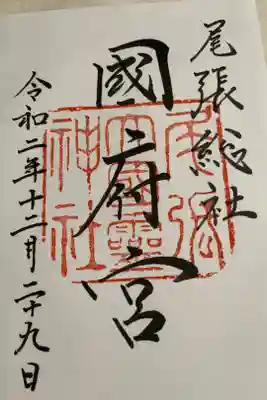 尾張総社
國府宮
尾張大國霊神社
令和二年十二月二十九日